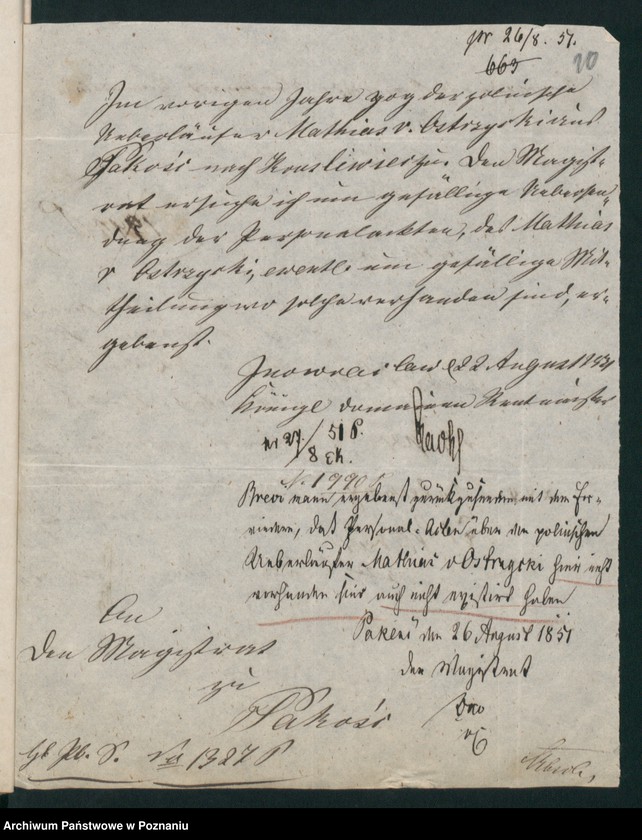 pr 26/8. 51.
665
20
Im vorigen Jahre zog der polnische
Ueberläufer Mathias v. Ostrzycki aus
Pakość nach Kruszliewiec zu. Den Magist-
rat ersuche ich um gefällige Uebersen-
dung der Personalackten, des Mathias
v Ostrzycki, eventl. um gefällige Mit-
theilung wo solche vorhanden sind, er-
gebenst.
Inowraclaw d 22 August 1851
Königl Domainen Rentmeister
27/8 51 P.
N. 1770
Brevi manu ergebenst zurückzusenden mit dem Er-
wiedern, daß Personal-Acten über den polnischen
Ueberläufer Mathias v Ostrzycki hier nicht
vorhanden sind auch nicht existirt haben
Pakość den 26 August 1851
der Magistrat
An
Den Magistrat
zu
Pakość
No 1327 P
Archiwum Państwowe w Poznaniu